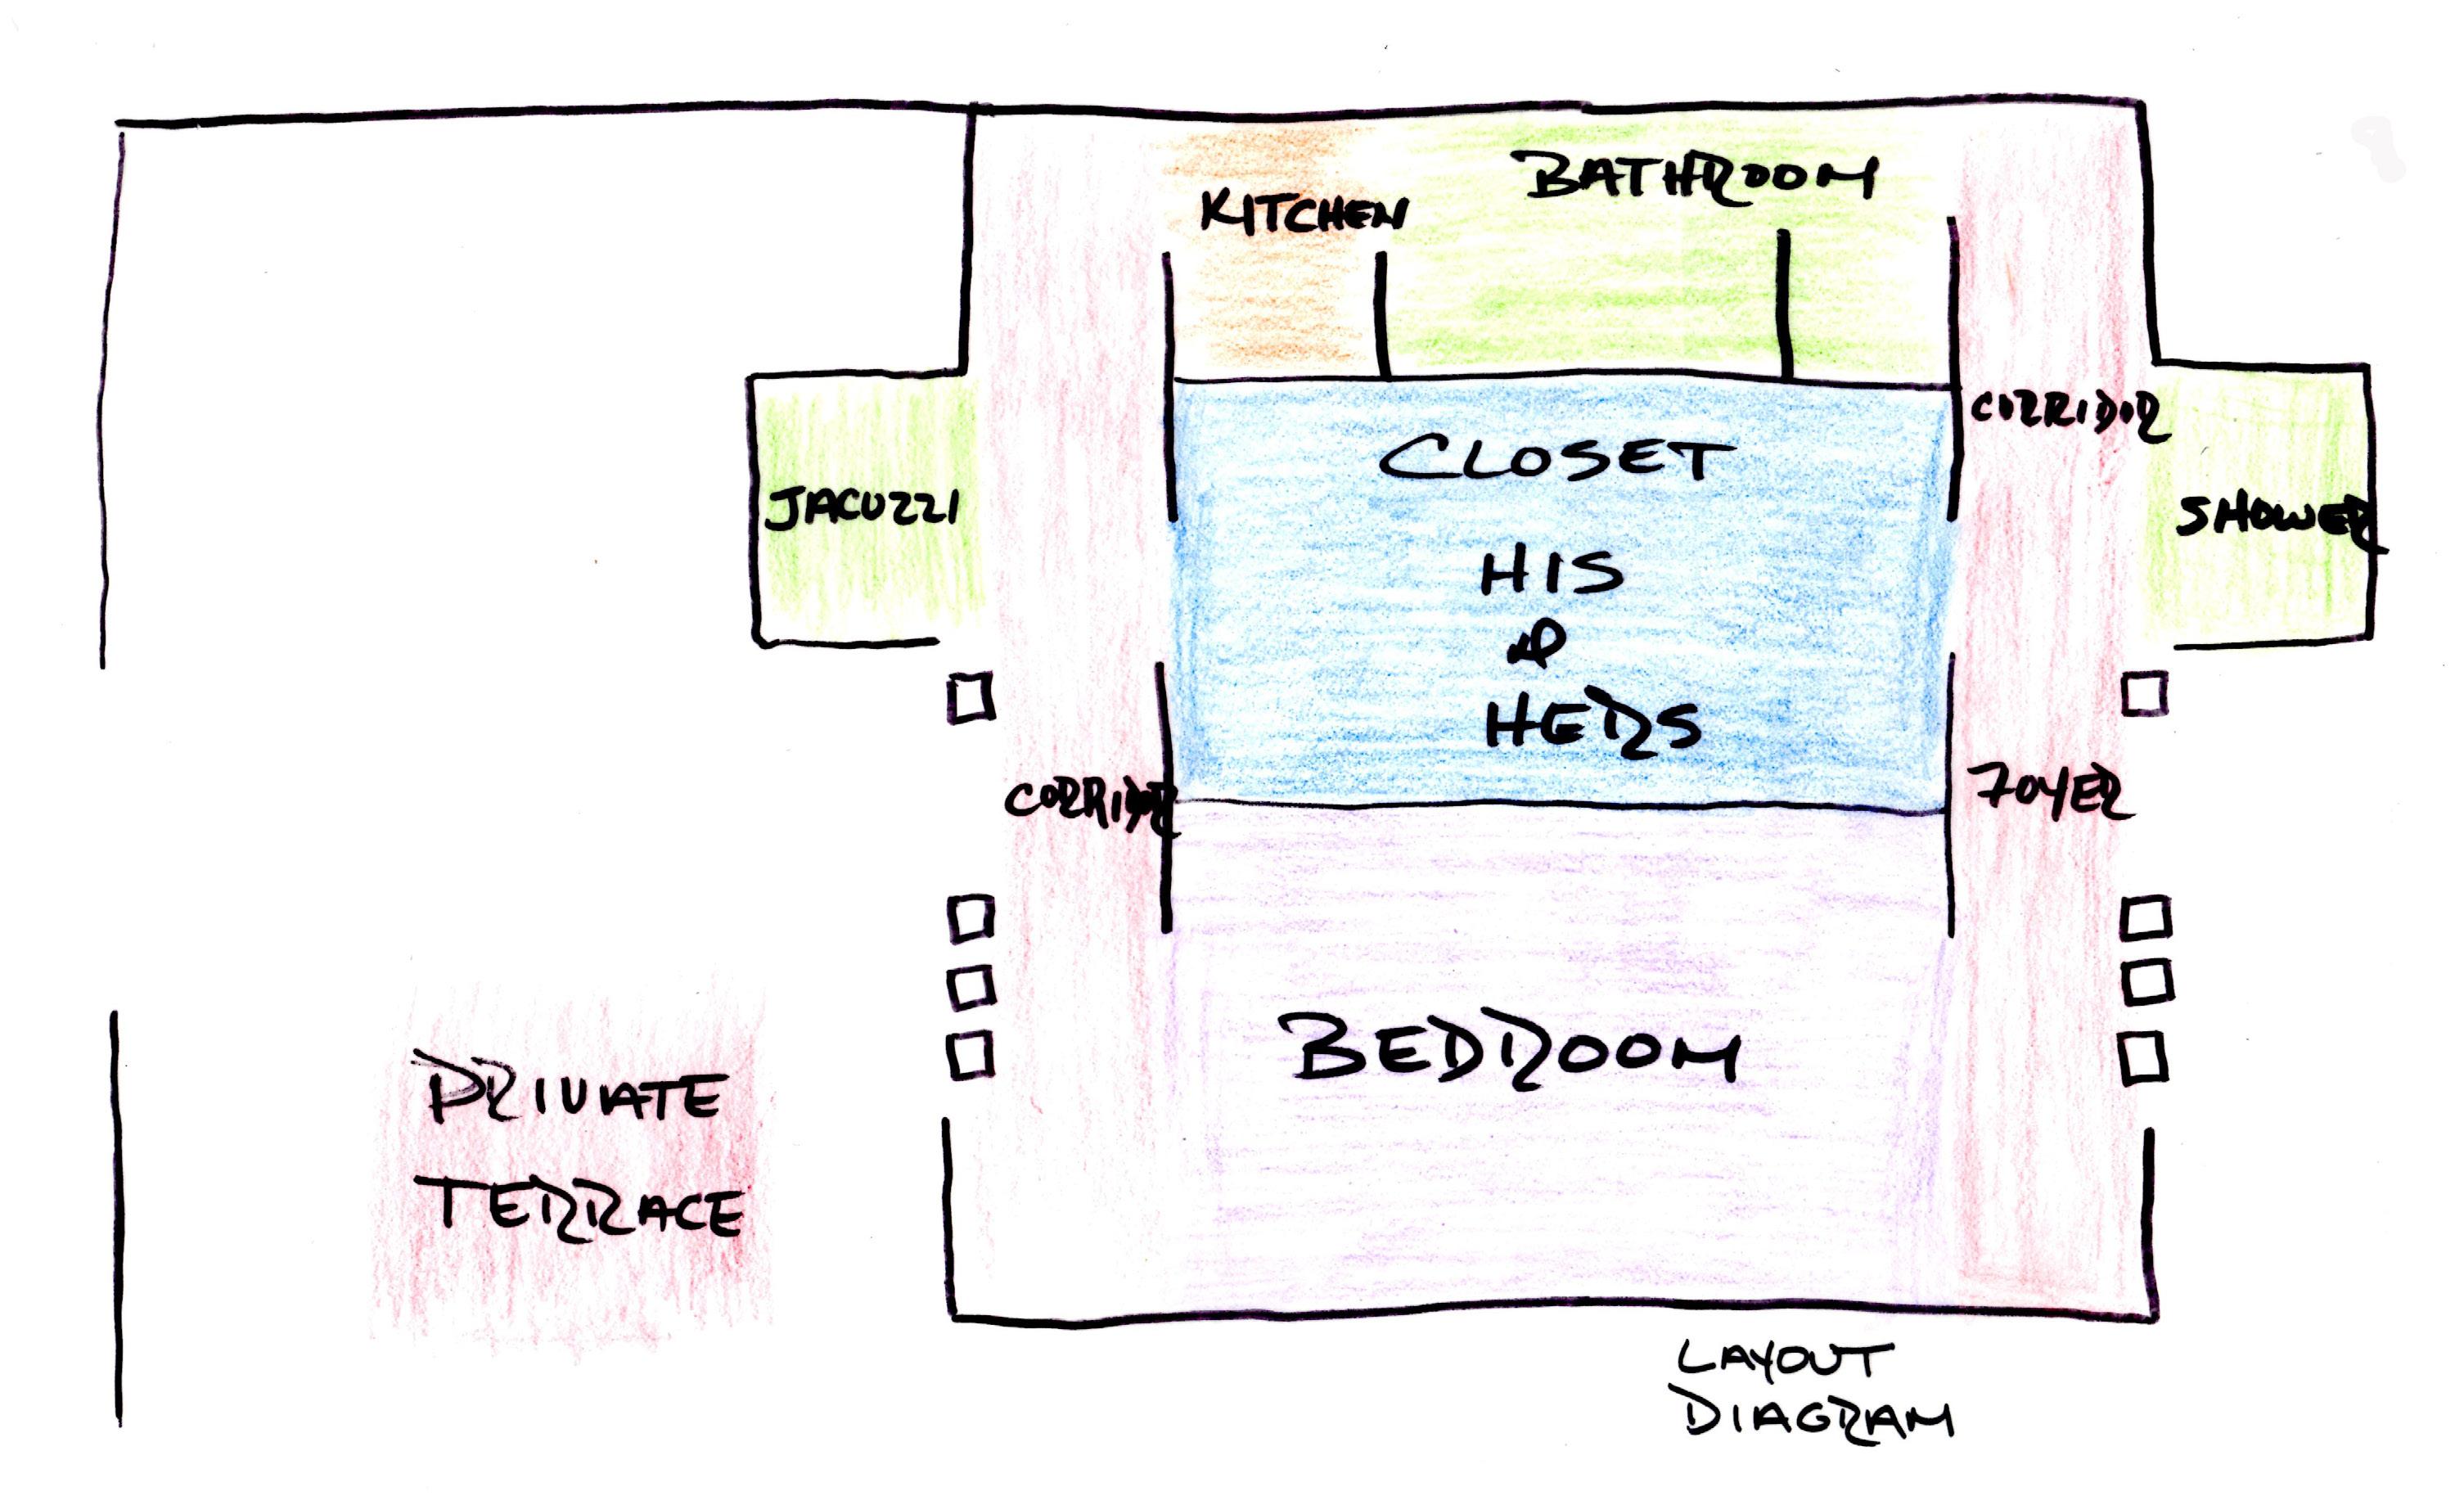 BATHROOM
KITCHEN
CORRIDOR
CLOSET
HIS
&
HERS
JACUZZI
SHOWER
CORRIDOR
FOYER
BEDROOM
PRIVATE
TERRACE
LAYOUT
DIAGRAM